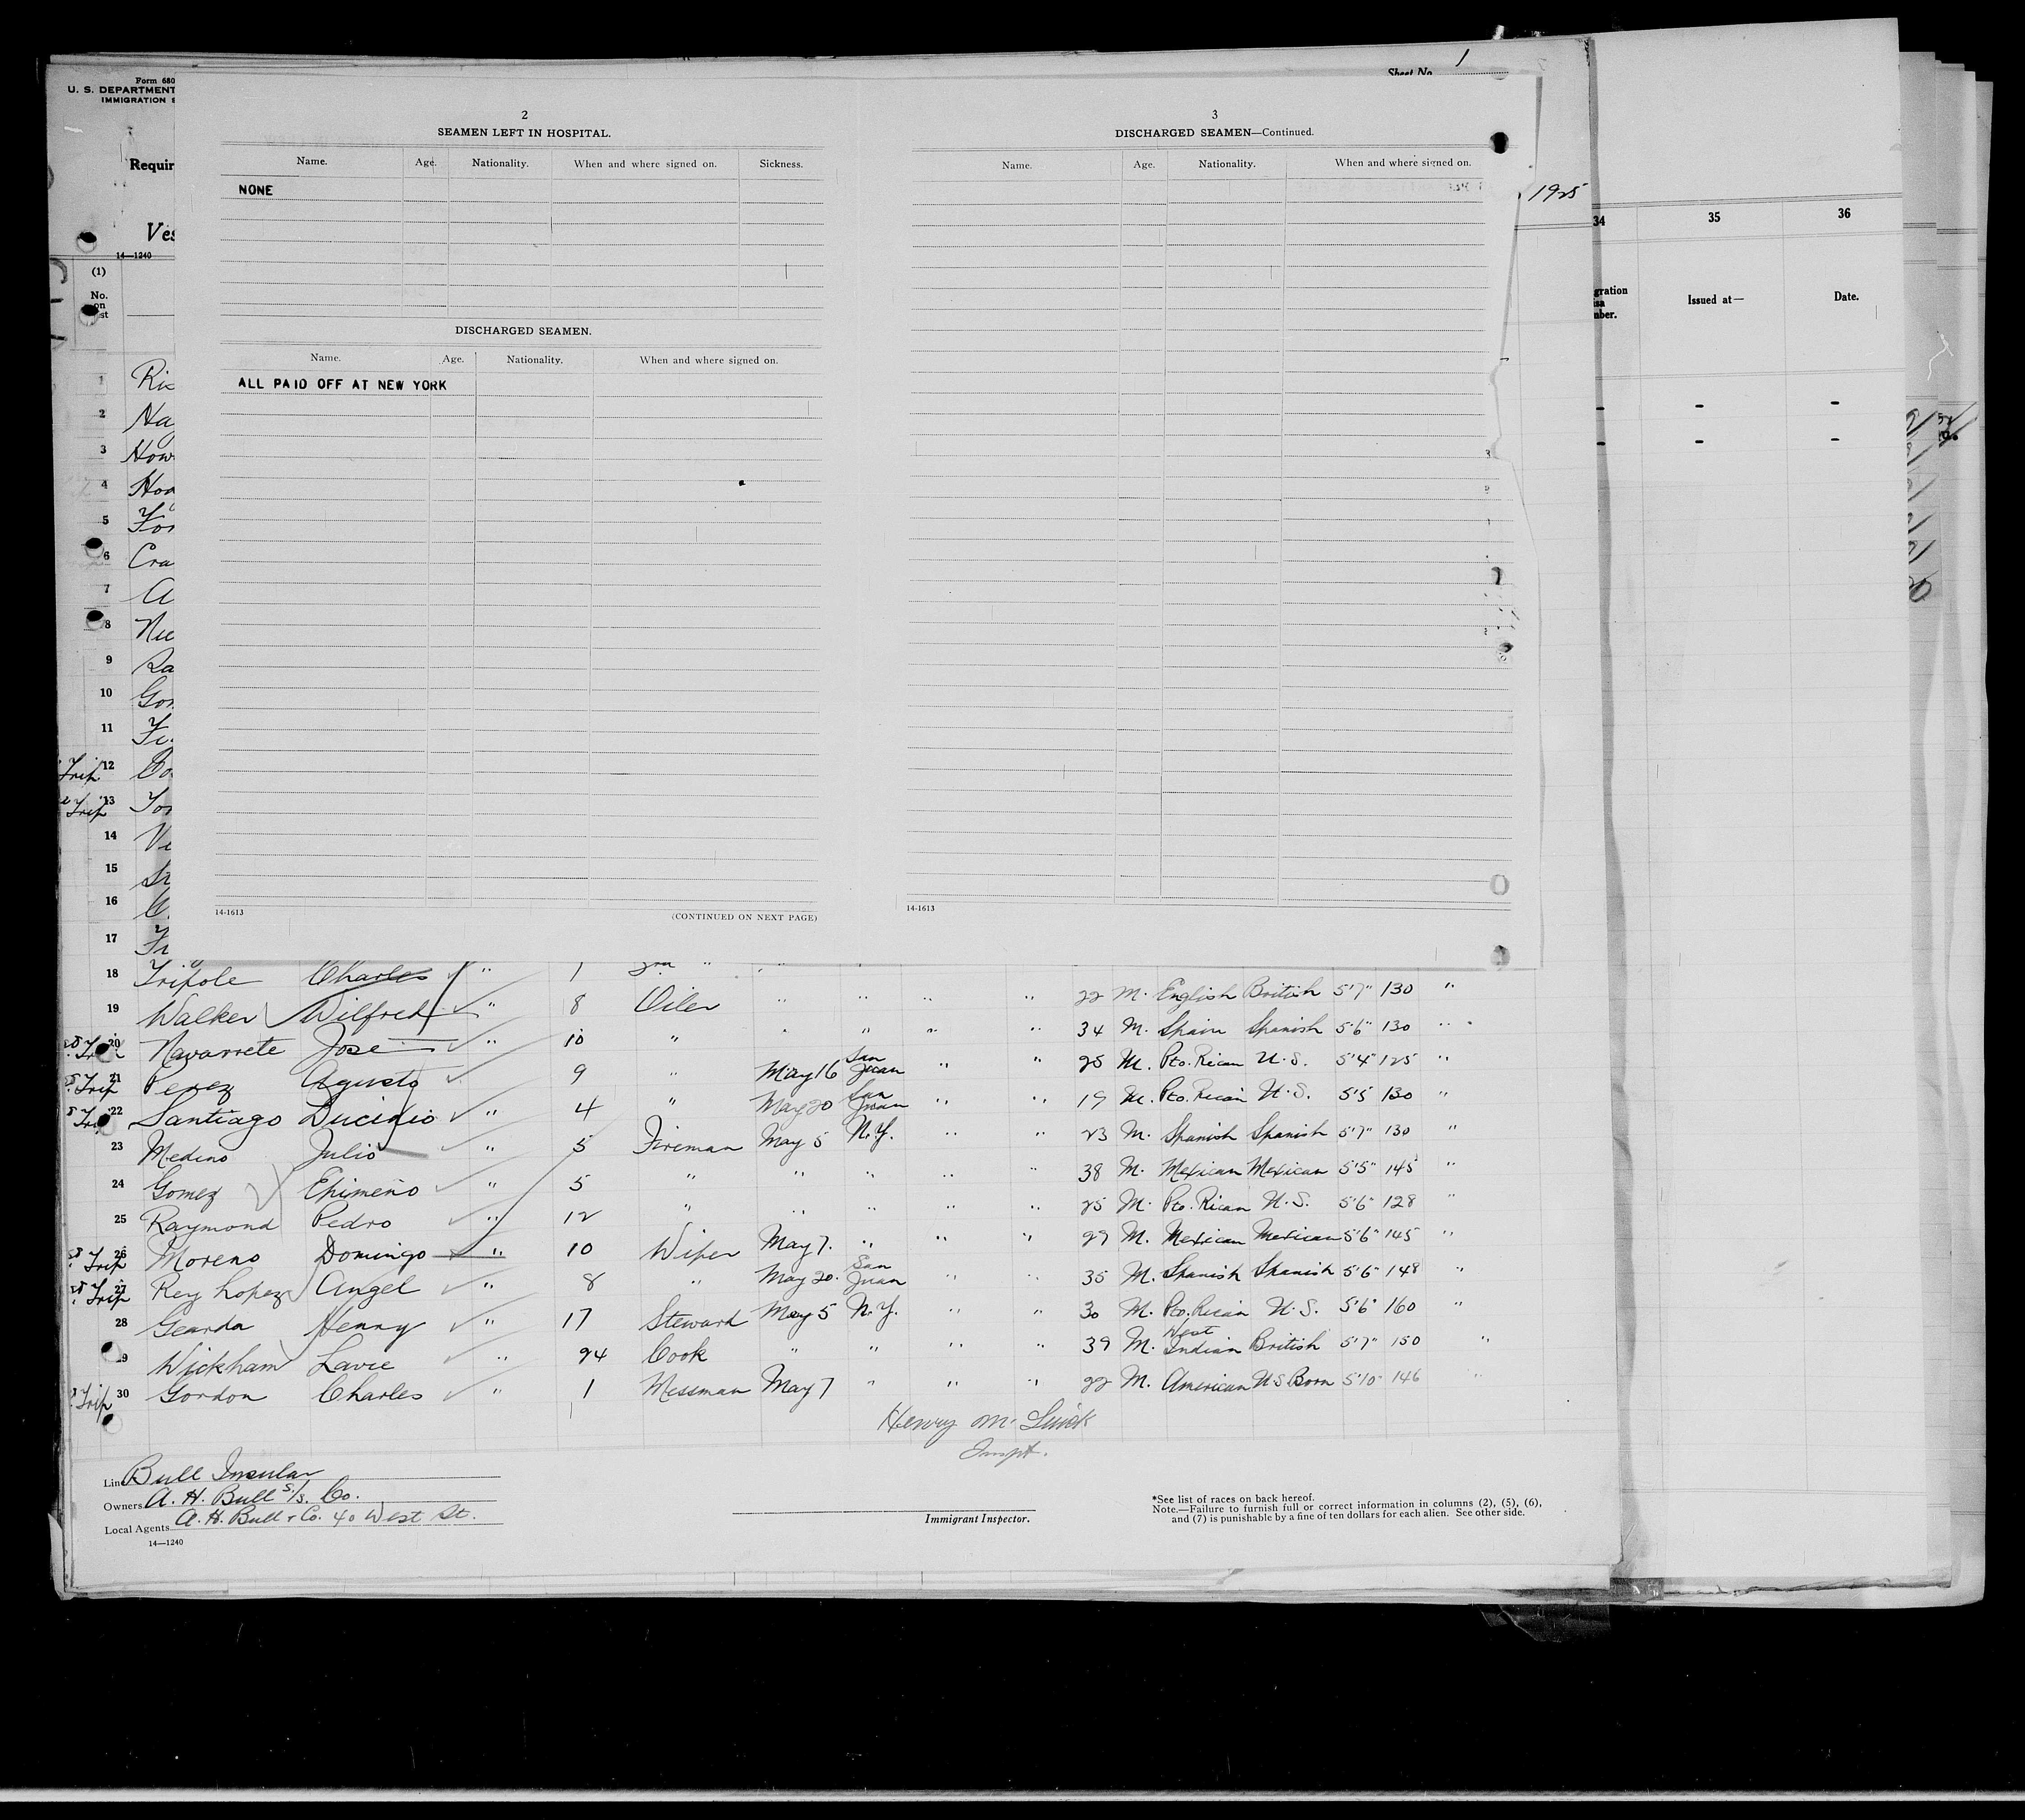 Form 680
U. S. DEPARTMENT
IMMIGRATION S
Sheet No. 1
Requir
Ves
14—1240
, 1925
(1)
No. on
34
35
36
gration
Issued at—
Date.
mber.
- -
- -
2
SEAMEN LEFT IN HOSPITAL.
Name. Age. Nationality. When and where signed on. Sickness.
NONE
DISCHARGED SEAMEN.
Name. Age. Nationality. When and where signed on.
ALL PAID OFF AT NEW YORK
14-1613
(CONTINUED ON NEXT PAGE)
3
DISCHARGED SEAMEN—Continued.
Name. Age. Nationality. When and where signed on.
14-1613
1 Ric
2 Na
3 How
4 Hog
5 For
6 Cra
7 A
8 Nu
9 La
10 Gon
11 Fi
Trip 12 Co
Trip 13 Tor
14 Vi
15
16 C
17 Fr
18 Tripole Charles " 1 3rd " " "
19 Walker Wilfred " 8 Oiler " " " " 22 M. English British 5'7" 130 "
Trip 20 Navarrete Jose " 10 " " " " " 34 M. Spain Spanish 5'6" 130 "
Trip 21 Perez Agusto 9 " May 16 San Juan " " 25 M. Pto. Rican U.S. 5'4" 125 "
22 Santiago Lucinio " 4 " May 20 San Juan " " 19 M. Pto. Rican U.S. 5'5 130 "
23 Medino Julio " 5 Fireman May 5 N.Y. " " 23 M. Spanish Spanish 5'7" 130 "
24 Gomez Epimeno " 5 " " " " " 38 M. Mexican Mexican 5'5" 145 "
25 Raymond Pedro " 12 " " " " " 25 M. Pto. Rican U.S. 5'6" 128 "
Trip 26 Moreno Domingo " 10 Wiper May 7. " " " 27 M. Mexican Mexican 5'6" 145 "
Trip 27 Rey Lopez Angel " 8 " May 20. San Juan " " 35 M. Spanish Spanish 5'6" 148 "
28 Gearda Henny " 17 Steward May 5 N.Y. " " 30 M. Pto. Rican U.S. 5'6" 160 "
29 Wickham Lavie " 94 Cook " " " " 39 M. West Indian British 5'7" 150 "
Trip 30 Gordon Charles " 1 Messman May 7 " " " 22 M. American US Born 5'10" 146 "
Henry M.
Inspt.
Line Bull Insular
Owners A. H. Bull S/S. Co.
Local Agents A. H. Bull + Co. 40 West St.
14—1240
Immigrant Inspector.
*See list of races on back hereof.
Note.—Failure to furnish full or correct information in columns (2), (5), (6),
and (7) is punishable by a fine of ten dollars for each alien. See other side.